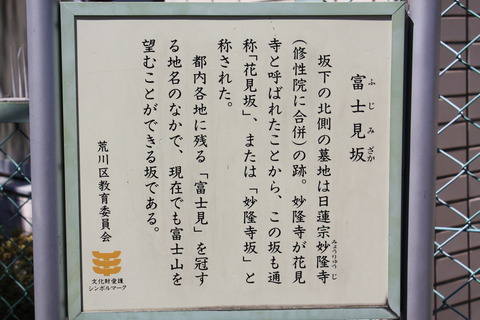 富士見坂
ふじみざか
坂下の北側の墓地は日蓮宗妙隆寺
みょうりゅうじ
(修性院に合併)の跡。妙隆寺が花見
寺と呼ばれたことから、この坂も通
称「花見坂」、または「妙隆寺坂」と
称された。
都内各地に残る「富士見」を冠す
る地名のなかで、現在でも富士山を
望むことができる坂である。
荒川区教育委員会
文化財愛護
シンボルマーク